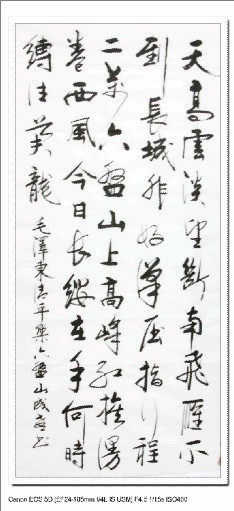 天高雲淡望斷南飛雁不
到長城非好漢屈指行程
二萬六盤山上高峰紅旗漫
卷西風今日長纓在手何時
縛住蒼龍 毛澤東清平樂六盤山 書
Canon EOS 5D [EF24-105mm f/4L IS USM] F4.5 1/15s ISO400